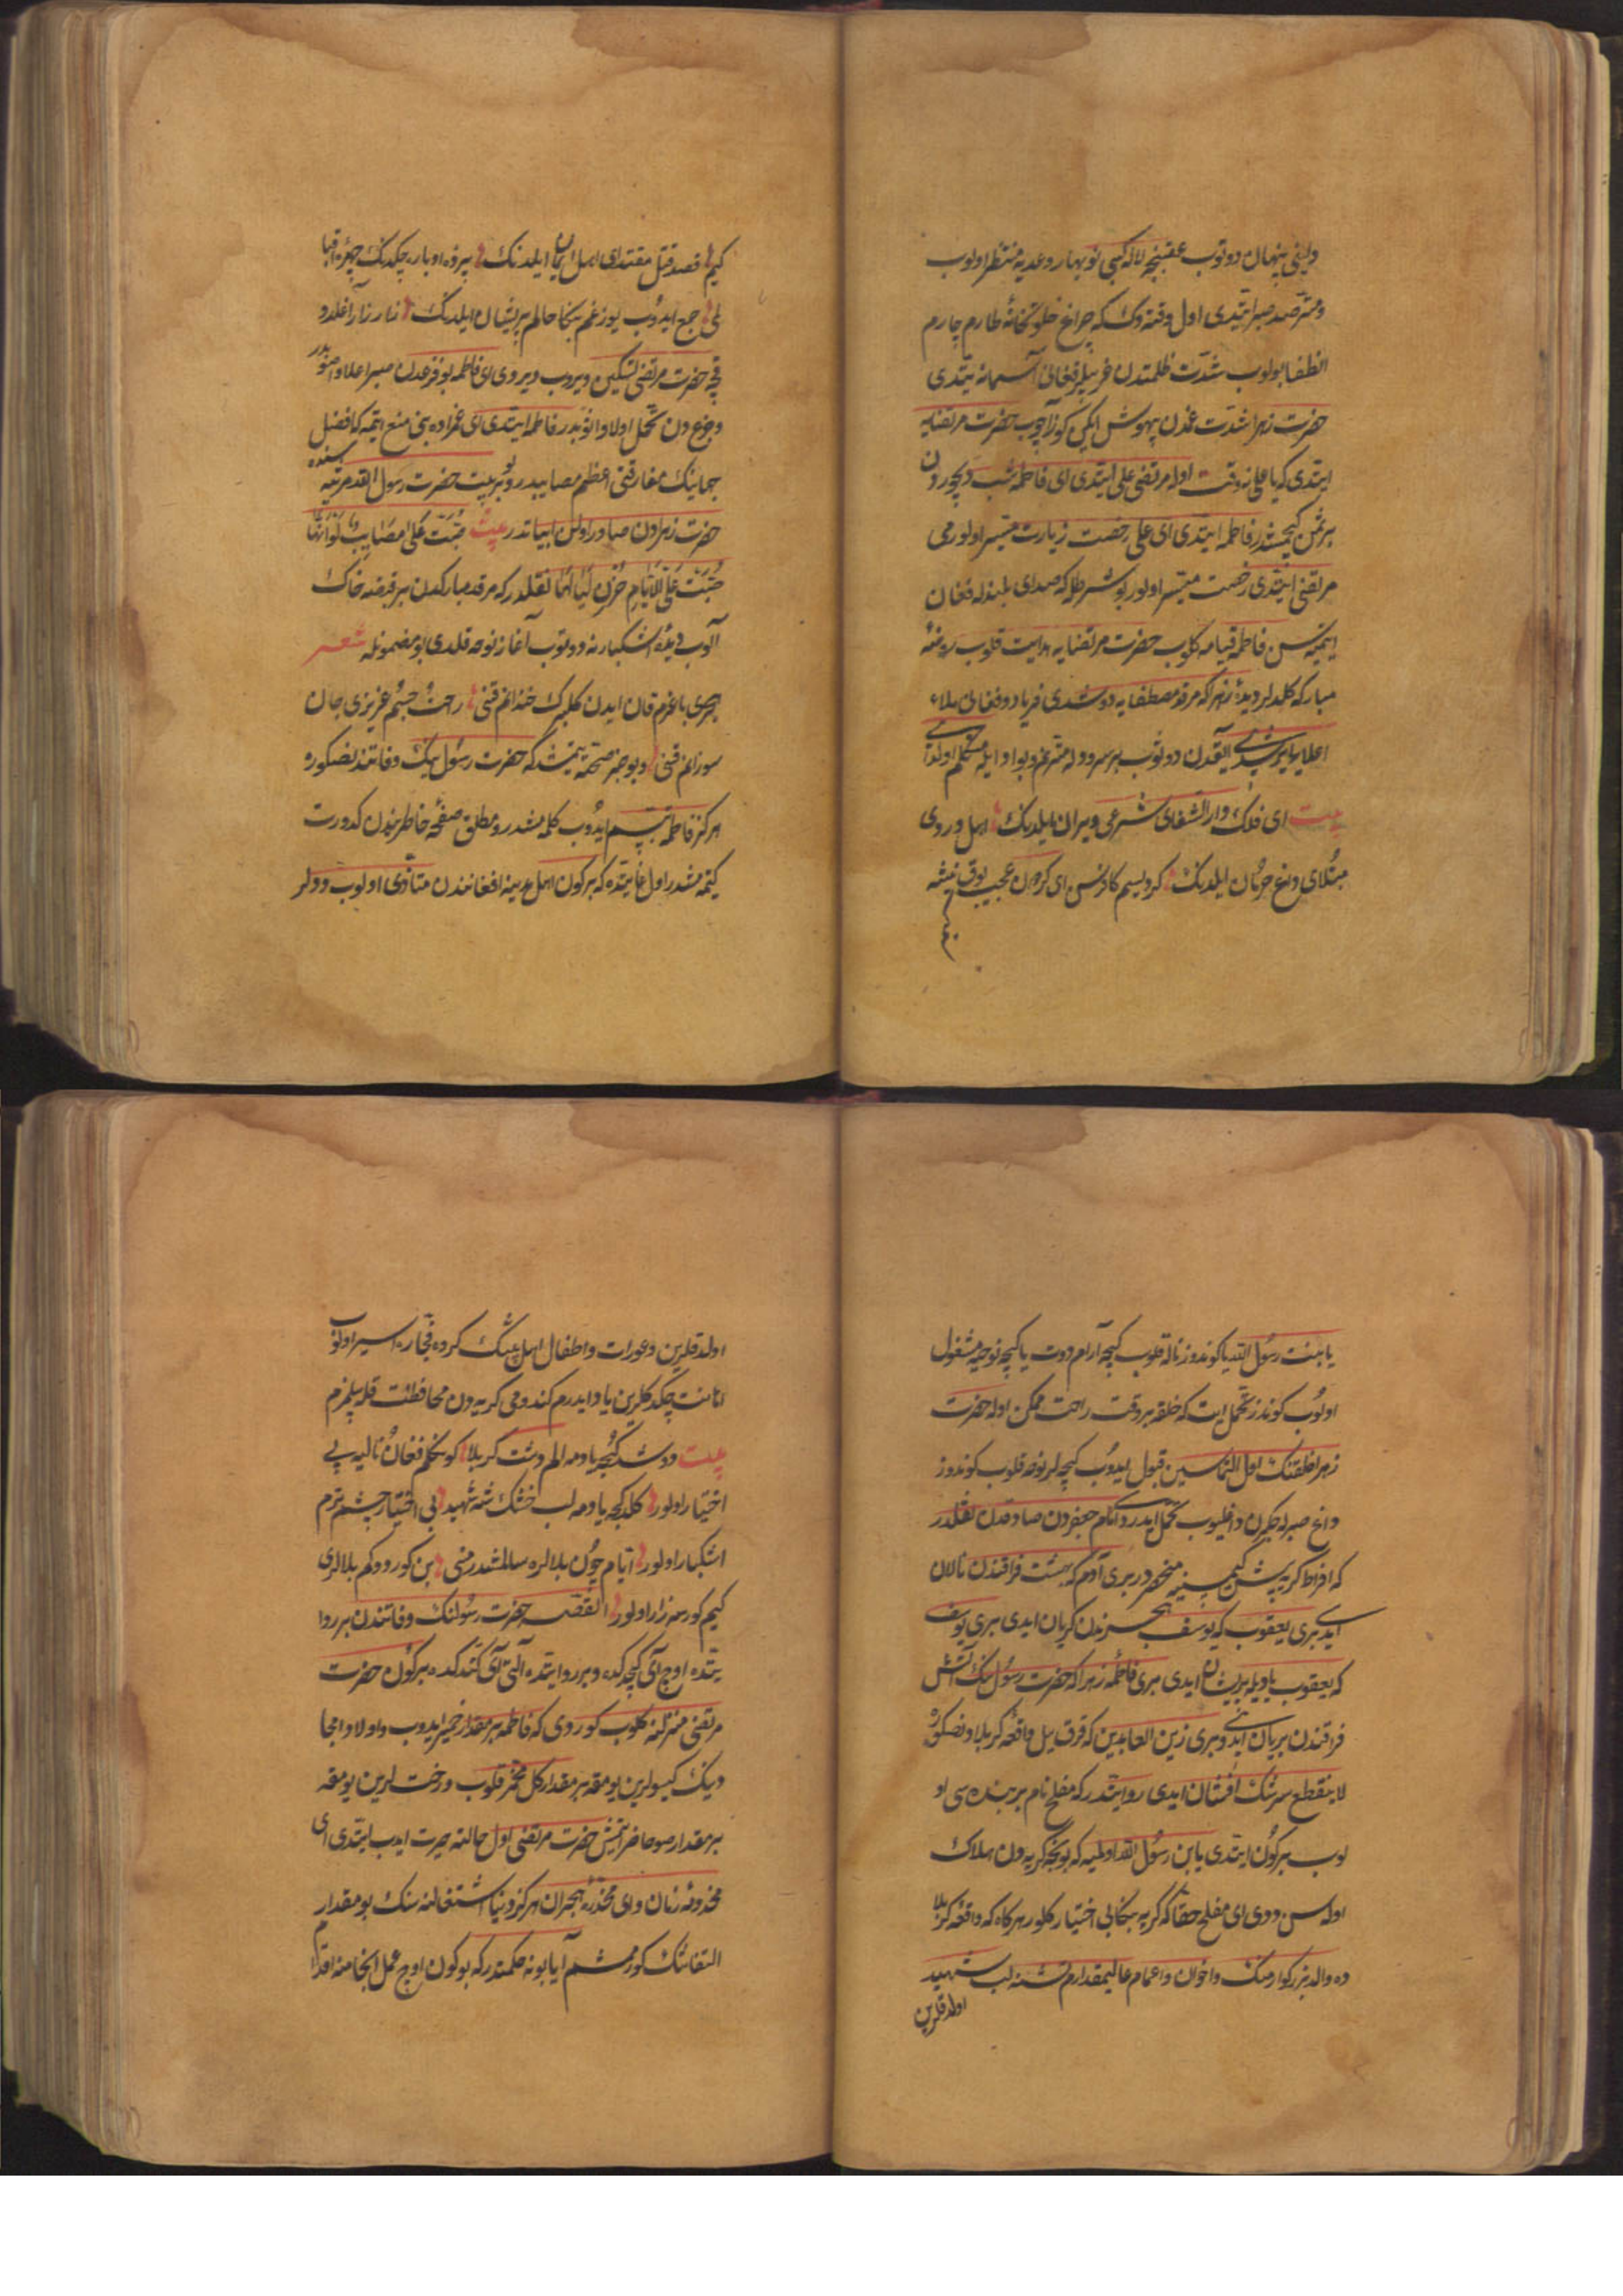 دلغی پنهان دوتوب عقبنچه لاله کبی نوبهار وعدیه منتظر اولوب
ومترصد صبر ایتدی اول وقته دک که چراغ خلوتخانهٔ طارم چارم
انطفا بولوب شدت ظلمتدن غریبلر فغانی آسمانه یتدی
حضرت زهرا شدت غمدن بیهوش ایکن کوز آچوب حضرت مرتضایه
ایتدی که یا علی نه وقت اوله مرتضی علی ایتدی ای فاطمه شب دیجوردن
بر ثمن کیچمشدر فاطمه ایتدی ای علی رخصت زیارت میسر اولورمی
مرتضی ایتدی رخصت میسر اولور بو شرطله که صدای بلندله فغان
ایتمیه سن فاطمه قیامه کلوب حضرت مرتضایه هدایت قلوب روضهٔ
مبارکه کلدلر دیدهٔ زهرا که مرقد مصطفایه دوشدی فریاد وفغانی ملاء
اعلایه ایرشدی القدن دوتوب بر سرودله مترنم وبو ادا ایله متکلم اولدی
بیت ای فلک دار الشفای شرعی ویران ایلدنک اهل دردی
مبتلای داغ حرمان ایلدنک کر دیسم کافرسن ای کردون عجب یوق نیشه
کیم قصد قتل مقتدای اهل ایمان ایلدنک پرده ادباره چکدنک چهره اقبا
لی جمع ایدوب یوز غم بنکا حالم پریشان ایلدنک زار زار اغلدو
قچه حضرت مرتضی تسکین ویروب دیردی ای فاطمه بو فزعدن صبر اعلا واصوبدر
وجزع دن تحمل اولا وانوبدر فاطمه ایتدی ای عمزاده بنی منع ایتمه کافضل
جمانیک مفارقتی اعظم مصایبدر وبو بیت حضرت رسول الله مرثیه سنده
حضرت زهرادن صادر اولن ابیاتدر بیت صُبَّت عَلَیَّ مَصَایِبٌ لَوْ اَنَّهَا
صُبَّتْ عَلَی الاَیَّامِ صِرْنَ لَیَالِیَا نقلدر که مرقد مبارکدن بر قبضه خاک
آلوب دیدهٔ اشکبارنه دوتوب آغاز نوحه قلدی بو مضمونله شعر
بغرم قان ایدن کلبرک خندانم قنی راحت جسم عزیزی جان
سوزانم قنی وبو خبر صحته یتمشدر که حضرت رسول نیک وفاتندنضکوره
هرکز فاطمه تبسم ایدوب کلمه مشدر ومطلق صفحهٔ خاطرندن کدورت
کیتمه مشدر اول غایتده که بر کون اهل مدینه افغانندن متاذی اولوب ددلر
یا بنت رسول الله یا کوندوز ناله قلوب کیچه آرام دوت یا کیچه نوحیه مشغول
اولوب کوندز تحمل ایت که خلقه بر وقت راحت ممکن اوله حضرت
زهرا خلقنک اول التماسین قبول ایدوب کیچه لر نوحه قلوب کوندوز
داغ صبرله جکرن داغلیوب تحمل ایدردی امام جعفردن صادقدن نقلدر
که افراط کریه بش کیمسنیه منحصردر بری آدم که بهشت فراقندن نالان
ایدی بری یعقوب که یوسف هجرندن کریان ایدی بری یوسف
که یعقوب یادیله پریشان ایدی بری فاطمه زهرا که حضرت رسول نک آتش
فراقندن بریان ایدی وبری زین العابدین که قرق ییل واقعه کربلادنضکوره
لاینقطع سرشک افشان ایدی روایتدر که مفلح نام بر بنده سی او
لوب بر کون ایتدی یابن رسول الله اولمیه که بونجه کریه دن هلاک
اوله سن ددی ای مفلح حقا که کریه بنکا بی اختیار کلور هر کاه که واقعهٔ کربلا
ده والد بزرکوارمنک واخوان واعمام عالیمقدارم تشنه لب شهید
اولدقلرین
اولدقلرین وعورات واطفال اهل بیتنک کروه فجّاره اسیر اولوب
اهانت چکدکلرین یاد ایدرم کندومی کریه دن محافظت قله بیلمزم
بیت دوشدکجه یادمه الم دشت کربلا کونکلم فغان ونالیه بی
اختیار اولور کلدکجه یادمه لب خشک شه شهید بی اختیار چشم ترم
اشکبار اولور ایام چون بلالره سالمشدر منی بن کوردوکم بلالری
کیم کورسه زار اولور القصه حضرت رسولنک وفاتندن بر روا
یتده اوج آی کیچه کده وبر روایتده آلتی آی کتدکده بر کون حضرت
مرتضی منزلنه کلوب کوردی که فاطمه بر مقدار خمیر ایدوب واولاد امجا
دینک کیسولرین یومقه بر مقدار کل مخمر قلوب ورخت لرین یومقه
بر مقدار صو حاضر ایتمش حضرت مرتضی اول حالته حیرت ایدب ایتدی ای
مخدومه زنان وای مخدرهٔ هجران هرکز دنیا اشتغالنه سنک بو مقدار
التفاتنک کورممشم آیا بو نه حکمتدر که بو کون اوج عمل انجامنه اقدام